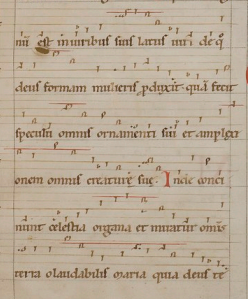 nũ est in viribus suis latus viri de q̃
deus formam mulieris ꝓduxit. quã fecit
speculũ omnis ornamenti sui et amplexi
onem omnis creature sue. Inde conci
nunt celestia organa et miratur omnis
terra o laudabilis maria quia deus te